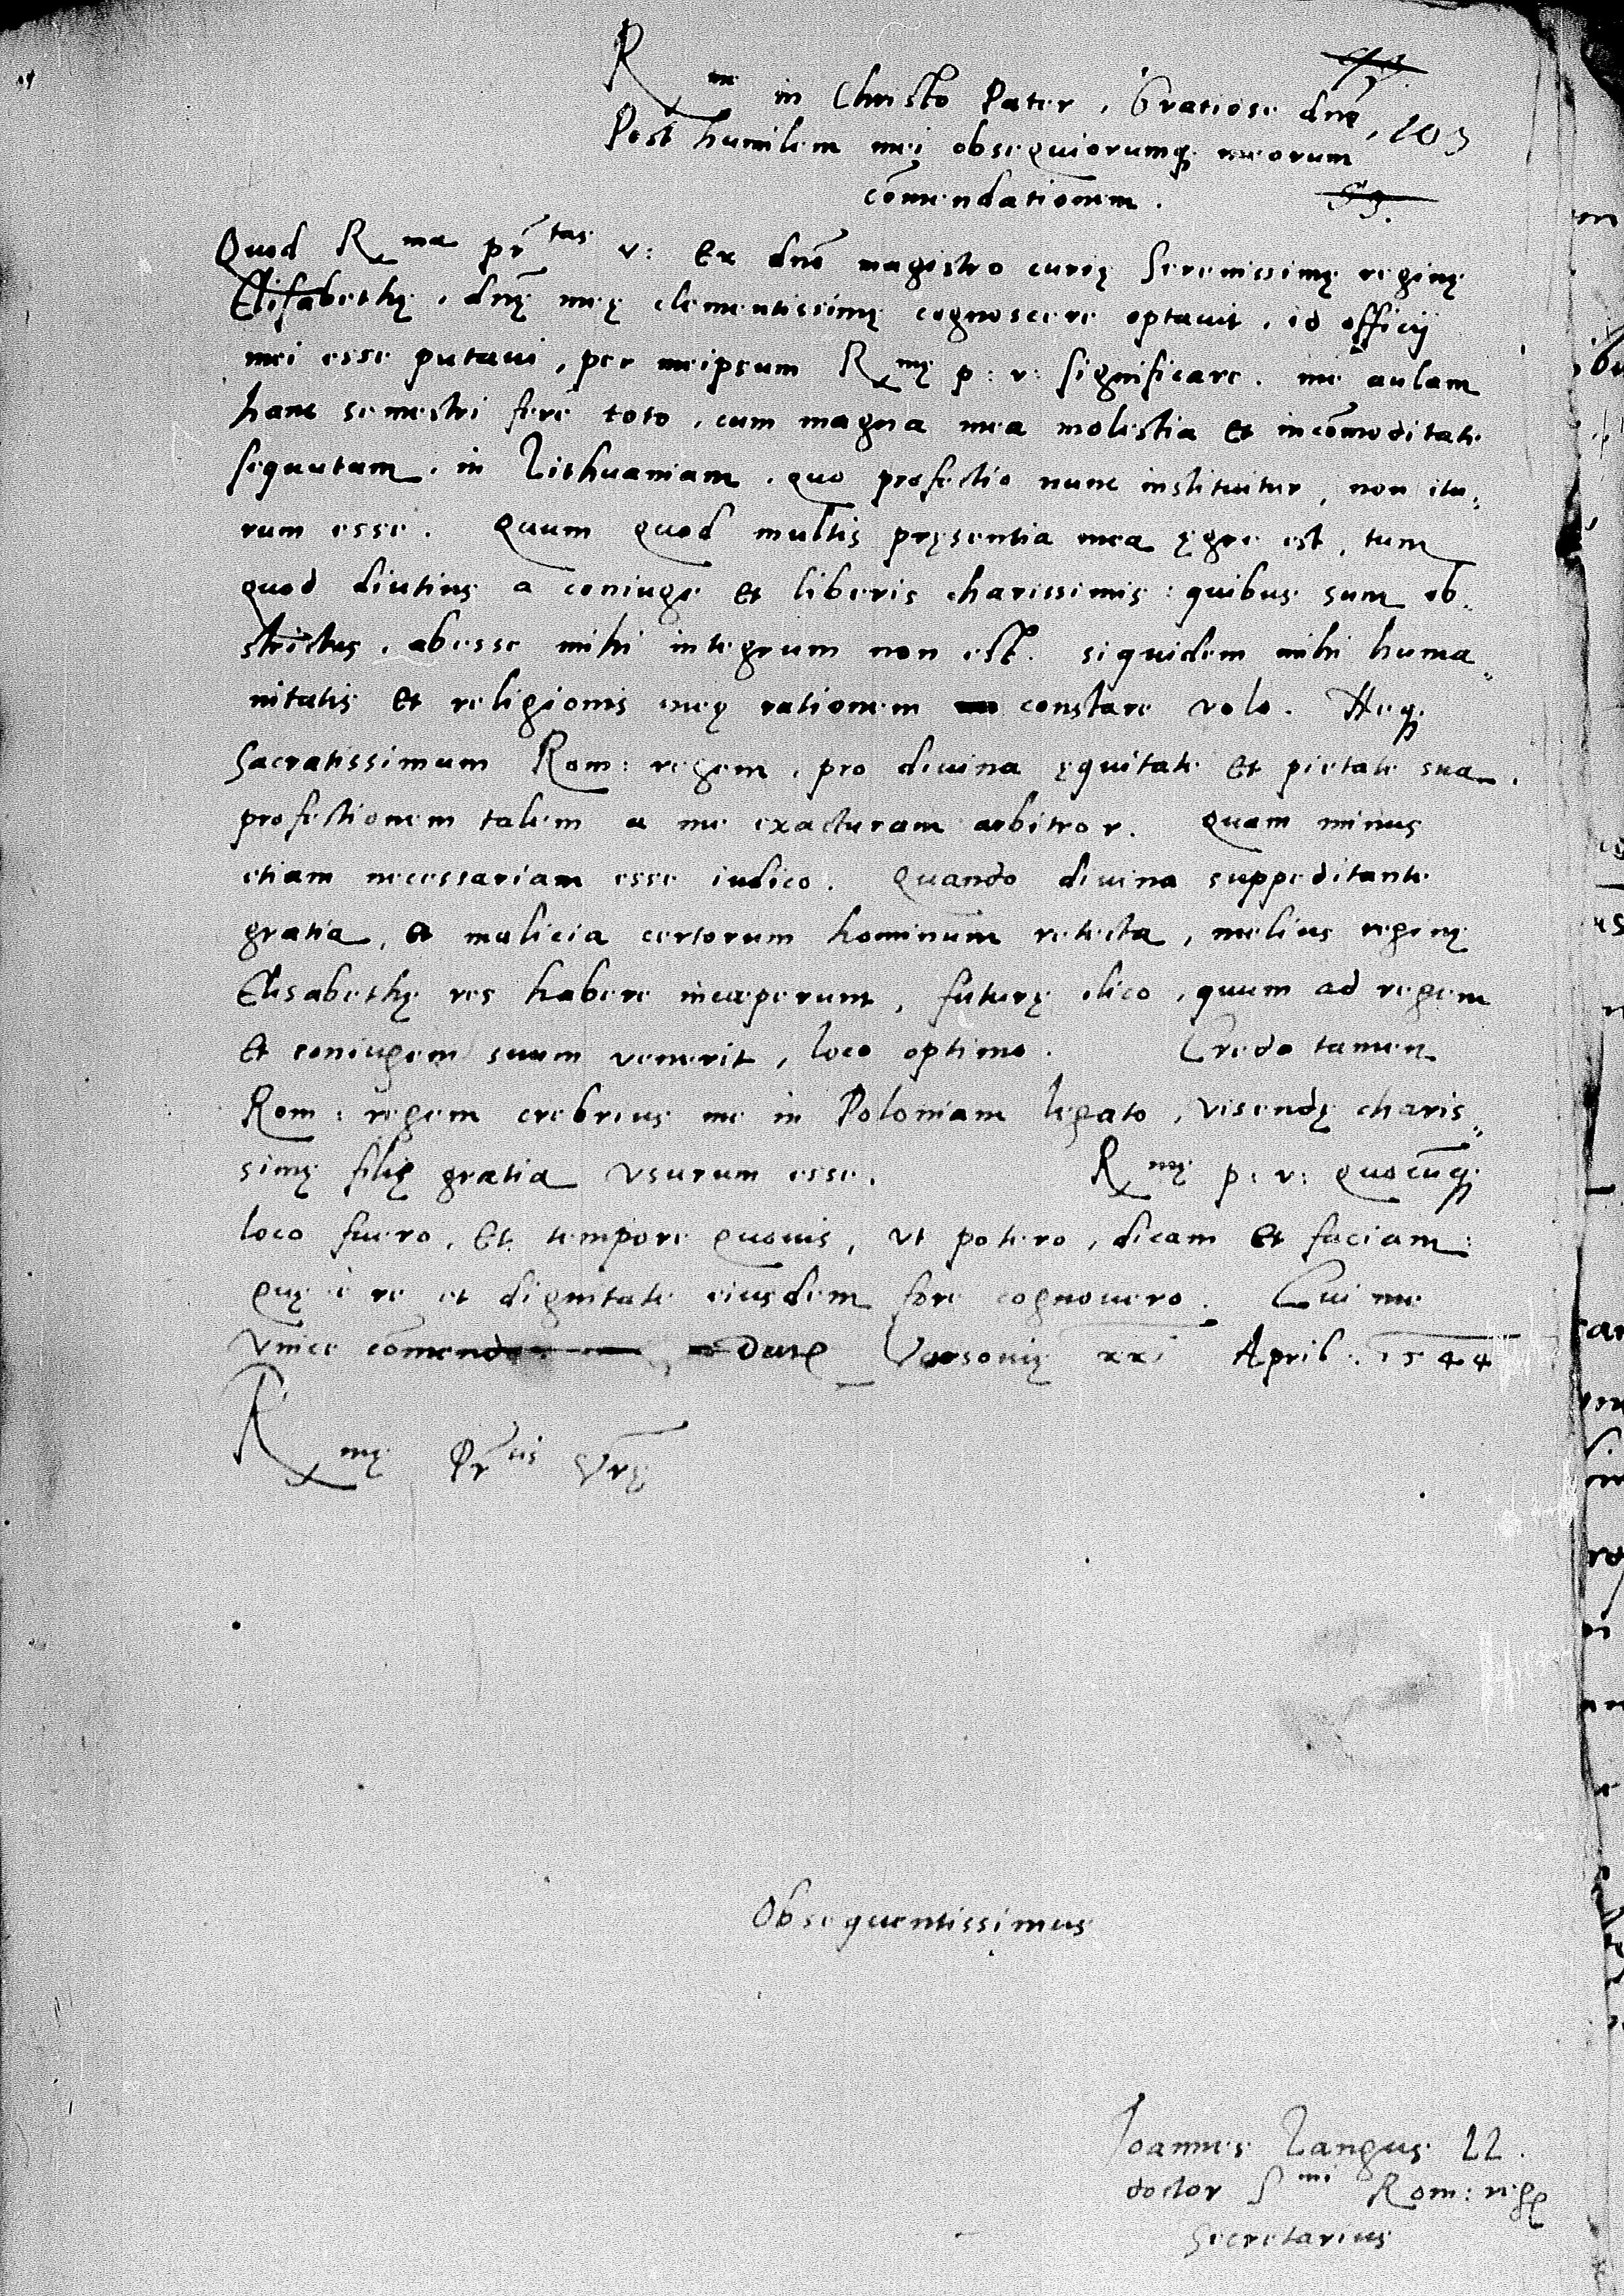 R me in Christo Pater, Gratiose dne
103
Post humilem mei obsequiorumq meorum
comendationem.
Quod R ma pr tas v: ex dno magistro curię Serenissimę reginę
Elisabethę, dnę meę clementissimę cognoscere optauit, id officij
mei esse putaui, per meipsum R mę p: v: significare. me aulam
hanc semestri fere toto, cum magna mea molestia et incōmoditate
sequutum, in Lithuaniam, quo profectio nunc instituitur, non itu„
rum esse. Quum quod multis pręsentia mea ęgre est, tum
quod diutius a coniuge et liberis charissimis: quibus sum ob„
strictus, abesse mihi integrum non est. siquidem mihi huma„
nitatis et religionis meę rationem constare volo. Neq
Sacratissimum Rom: regem, pro diuina ęquitate et pietate sua,
profectionem talem a me exacturum arbitror. Quam minus
etiam necessariam esse iudico. Quando diuina suppeditante
gratia, et malicia certorum hominum retecta, melius reginę
Elisabethę res habere inceperunt, futurę ilico, quum ad regem
et coniugem suum venerit, loco optimo. Credo tamen
Rom: regem crebrius me in Poloniam legato, visendę charis„
simę filię gratia vsurum esse. R mę p: v: quocūq
loco fuero, et tempore quouis, vt potero, dicam et faciam:
quę è re et dignitate eiusdem fore cognouero. Cui me
vnice cōmendo Datę Varsouię xxi April. 1544
R mę Pr tis Vrę
Obsequentissimus
Ioannes Langus LL.
doctor S mi Rom: reg
Secretarius